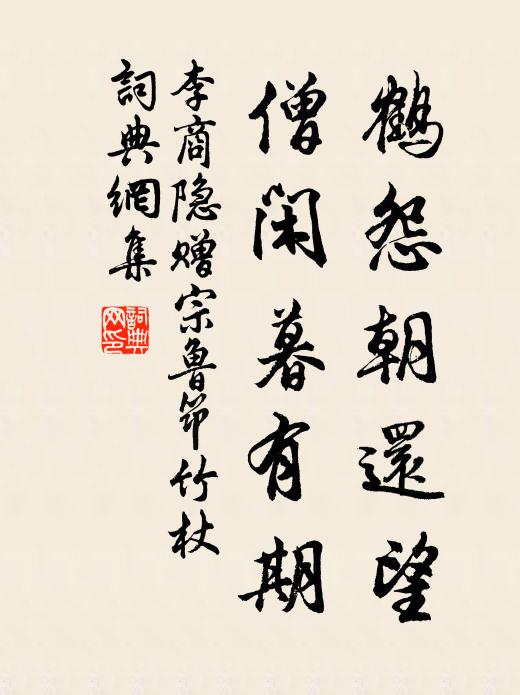 鶴怨朝還望
僧閑暮有期
李商隐贈宗魯筇竹杖
詞典網集
詞典
网印